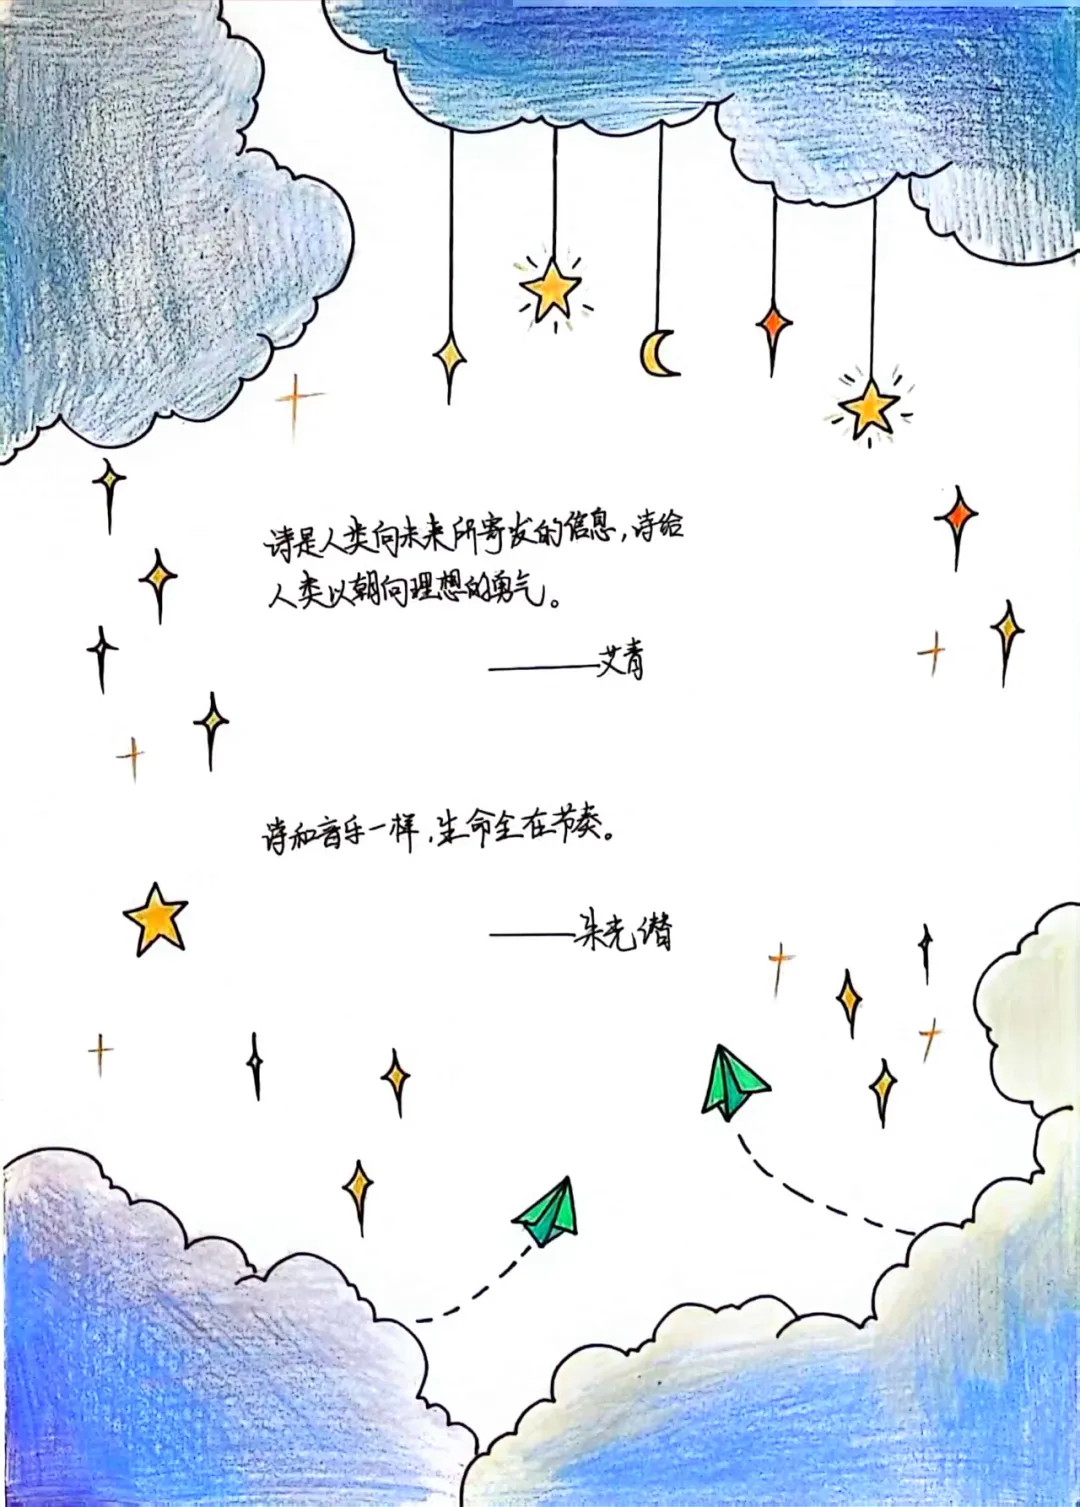 诗是人类向未来所寄发的信息,诗给
人类以朝向理想的勇气。
———艾青
诗和音乐一样,生命全在节奏。
———朱光潜